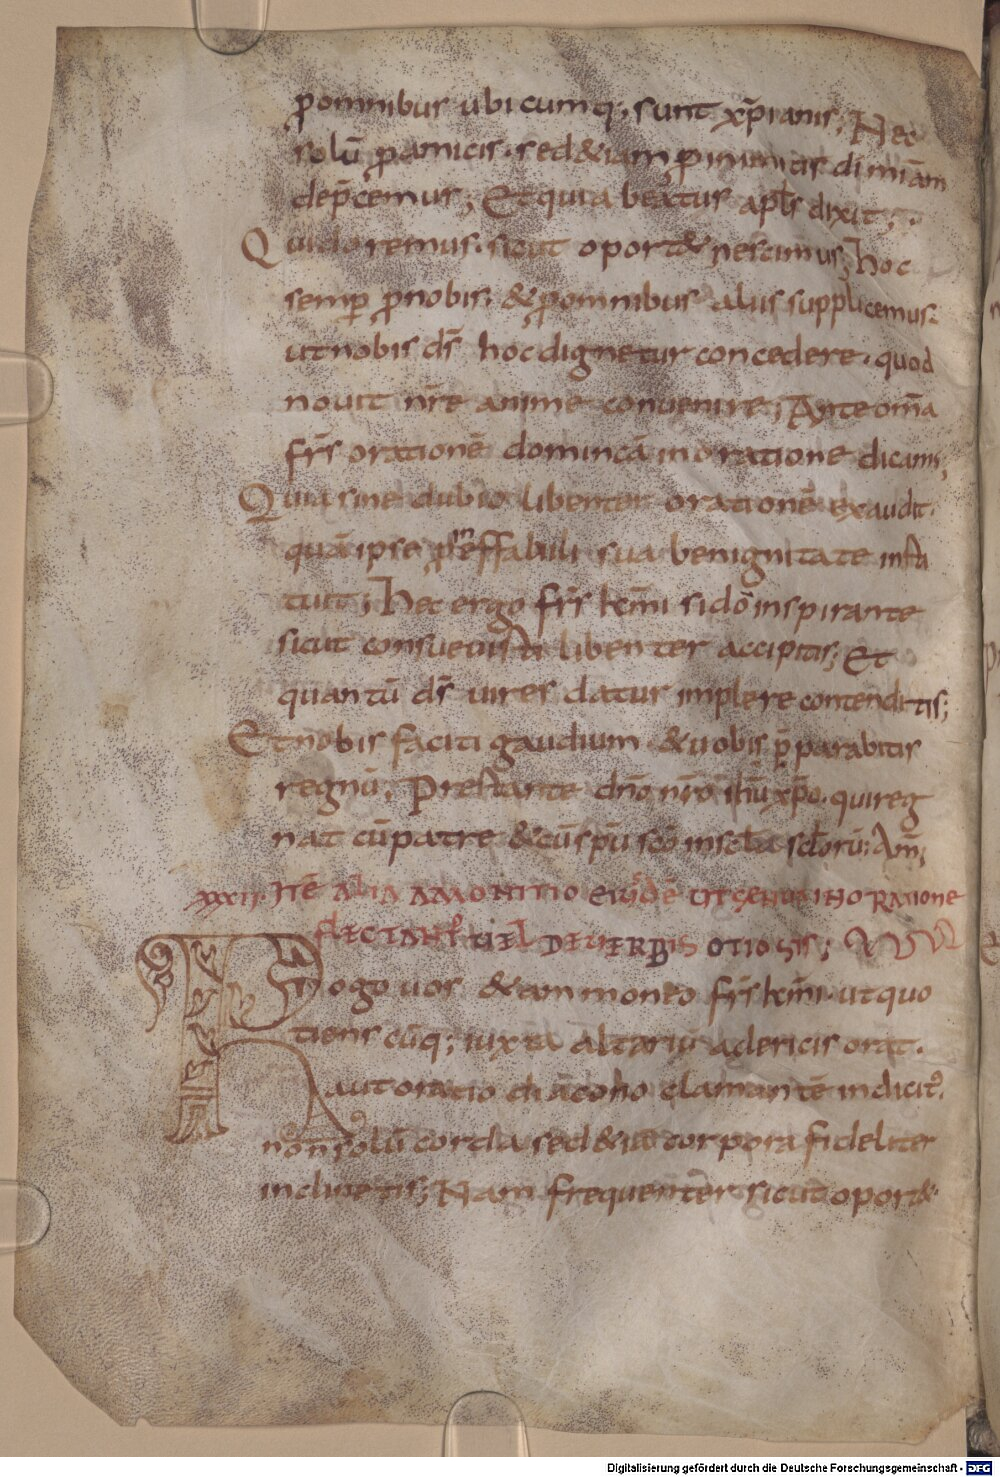 p̄omnibus ubicumq; sunt xp̄ianis; Nec
solū p̄amicis. sed&iam p̄inimicis dimiām
dep̄cemur; Et quia beatus apl̄s dixit;
Quid oremus. sicut oport& nescimus; hoc
semp̄ p̄nobis. & p̄omnibus aliis supplicemus.
ut nobis dr̄ hoc dignetur concedere. quod
nouit nr̄e anime conuenire; Ante om̄a
fr̄s orationē dominicā in oratione dicam̄;
Quia sine dubio libenter orationē exaudit.
quā ipse p̄ineffabili sua benignitate insti
tuit; hec ergo fr̄s km̄i si dō inspirante
sicut consuetustis libenter accipitis; Et
quantū ds̄ uires datur implere contenditis;
Et nobis faciti gaudium. & uobis p̄parabitis
regnū; Prestante dn̄o nr̄o ih̄u xp̄o. qui reg
nat cū patre & cū sp̄u sc̄o in scl̄a scl̄orū; Am̄;
xxxii. ITĒ ALIA AMONITIO EIUSDĒ UT GENUA IN ORATIONE
FLECTANT UEL DE UERBIS OTIOSIS;
Rogo uos & ammoneo fr̄s km̄i. ut quo
tiens cūq; iuxta altariū a clericis orat.
aut oratio diācono clamante indicit̄.
non solū corda sed & iā corpora fideliter
inclinetis; Nam frequenter sicut oport&
Digitalisierung gefördert durch die Deutsche Forschungsgemeinschaft - DFG